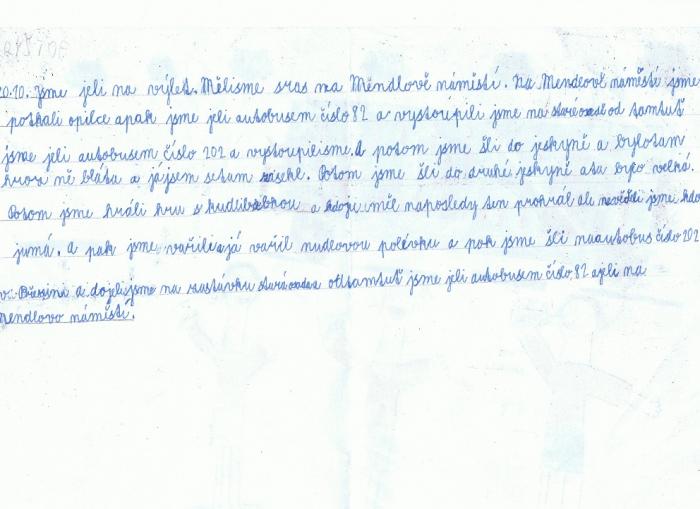 20.10. Jsme jeli na výlet. Mělisme sras na Mendlově náměstí. Na Mendlově náměstí jsme
potkali opilce apak jsme jeli autobusem číslo 82 a vystoupili jsme na od tamtuť
jsme jeli autobusem číslo 202 a vystoupilisme. A potom jsme šli do jeskyně a bylotam
hrozně bláta a já jsem setam . Potom jsme šli do druhé jeskyně ata byla velká.
Potom jsme hráli hru s kudlibabkou a kdoju měl naposledy ten prohrál ale jsme kdo
jumá. a pak jsme vařili a já vařil nudlovou polévku a pak jsme šli naautobus číslo 202
v a dojelijsme na zastávku odtamtuť jsme jeli autobusem číslo 82 ajeli na
mendlovo náměstí.